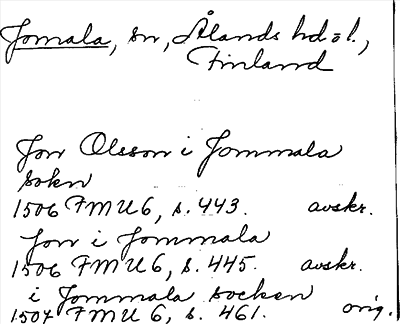 Jomala, sn, Ålands hd. o l.,
Finland
Jon Olsson i Jommala
sokn
1506 FMU 6, s. 443. avskr.
Jon i Jommala
1506 FMU 6, s. 445. avskr.
i Jommala socken
1507 FMU 6, s. 461. orig.